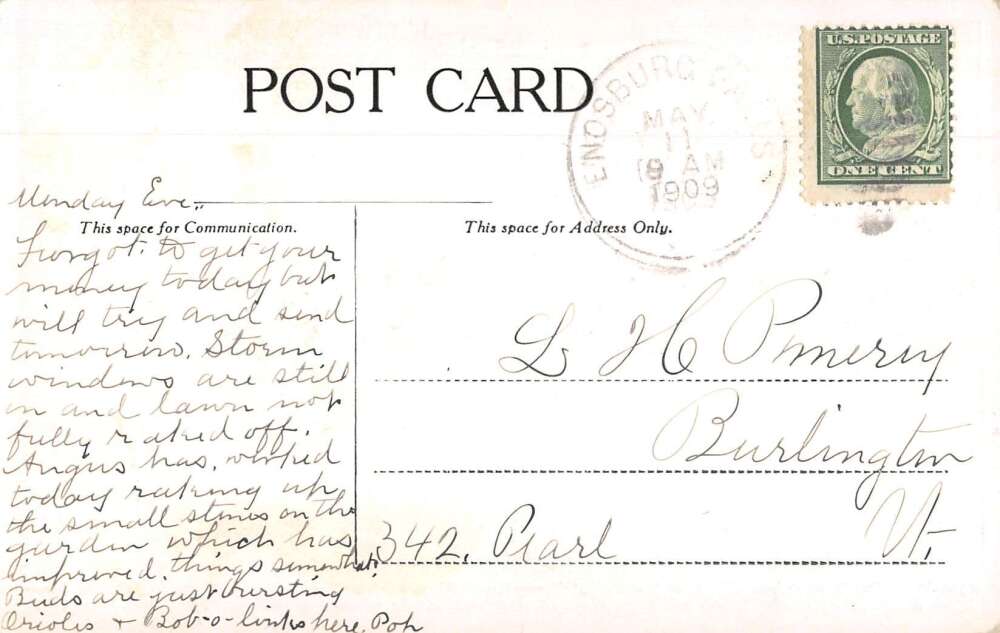 POST CARD
ENOSBURG FALLS
MAY
11
9 AM
1909
U.S. POSTAGE
ONE CENT
This space for Communication.
This space for Address Only.
Monday Eve.,
Forgot to get your
money today but
will try and send
tomorrow. Storm
windows are still
on and lawn not
fully raked off.
Angus has worked
today raking up
the small stones on the
garden which has
improved things somewhat.
Buds are just bursting
Orioles + Bob-o-links here.
L H Pomeroy
Burlington
342. Pearl Vt.